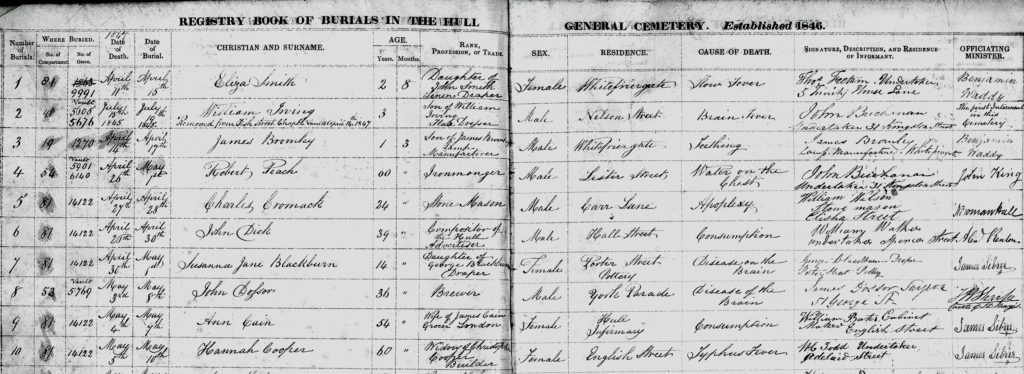 REGISTRY BOOK OF BURIALS IN THE HULL GENERAL CEMETERY. Established 1846.
Number of Burials. WHERE BURIED. No. of Compartment No. of Grave. 1847 Date of Death. Date of Burial. CHRISTIAN AND SURNAME. AGE. Years. Months. RANK, PROFESSION, OR TRADE. SEX. RESIDENCE. CAUSE OF DEATH. SIGNATURE, DESCRIPTION, AND RESIDENCE OF INFORMANT. OFFICIATING MINISTER.
1 9991 April 11th April 15th Eliza Smith 2 8 Daughter of John Smith Linen Draper Female Whitefriargate Slow Fever Undertaker, 5 Trinity House Lane Benjamin Waddy
2 Vault 5676 July 1845 July 1845 William Irving 3 Son of William Irving Male Nelson Street Brain Fever John Buchanan Undertaker 31 Kingston Street The first Interment in this Cemetery
3 19 1270 April April 17th James Bromley 1 3 Son of James Bromley Lamp Manufacturer Male Whitefriargate Teething James Bromley Lamp Manufacturer Whitefriargate Benjamin Waddy
4 54 Vault 5901 6140 April 26th May 1st Robert Peach 60 " Ironmonger Male Lister Street Water on the Chest John Buchanan Undertaker 31 Kingston Street John King
5 81 14122 April 27th April 28th Charles Cromack 24 " Stone Mason Male Carr Lane Apoplexy William Wilson Stone mason Elisha Street
6 81 14122 April April 30th John Dick 39 " Compositor of the Hull Advertiser Male Hall Street Consumption William Walker undertaker Spencer Street
7 81 14122 April 30th May 1st Susanna Jane Blackburn 14 " Daughter of George Blackburn Draper Female Porter Street Pottery Disease on the Brain George Blackburn Draper Porter Street Pottery James Sibree
8 53 Vault 5769 May 3rd May 8th John Dossor 36 " Brewer Male York Parade Disease of the Brain James Dossor Surgeon 51 George St.
9 81 14122 May 4th May 9th Ann Cain 54 " Wife of James Cain London Female Hull Infirmary Consumption William Cabinet Maker English Street James Sibree
10 81 14122 May 7th May 10th Hannah Cooper 60 " Widow of Christopher Cooper Builder Female English Street Typhus Fever Wm Todd Undertaker Adelaide Street James Sibree